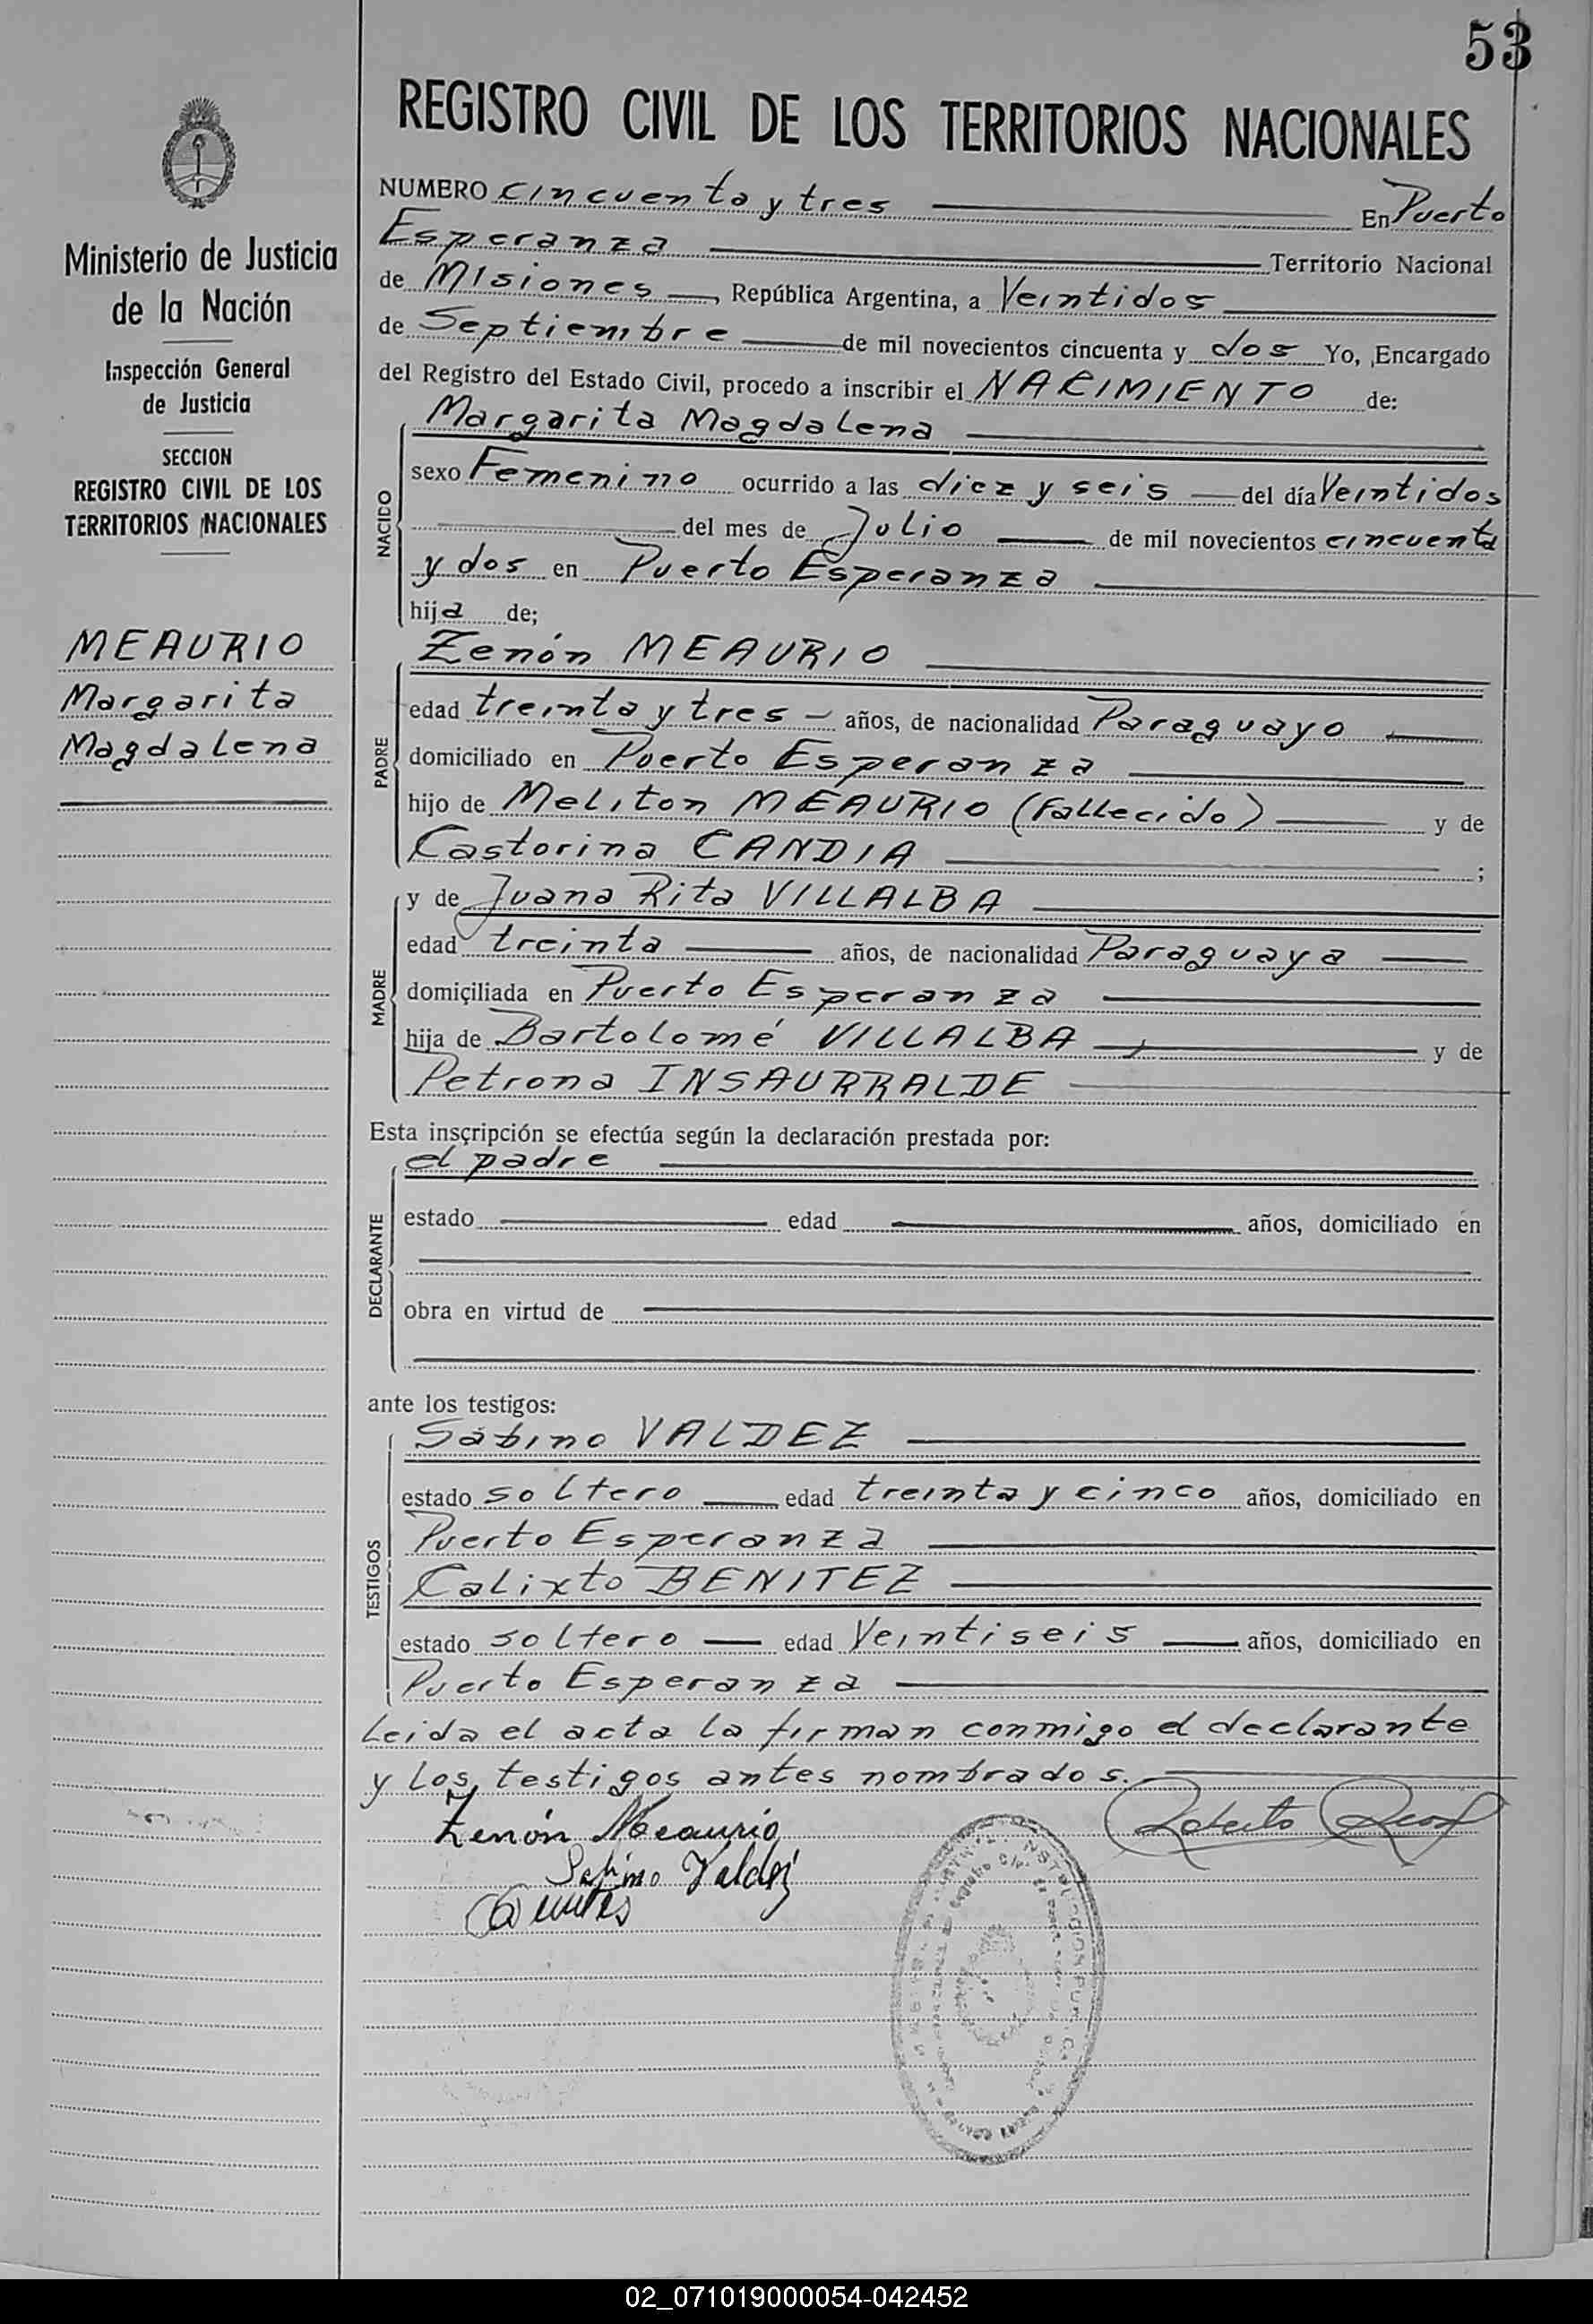 53
REGISTRO CIVIL DE LOS TERRITORIOS NACIONALES
Ministerio de Justicia
de la Nación
Inspección General
de Justicia
SECCION
REGISTRO CIVIL DE LOS
TERRITORIOS NACIONALES
MEAURIO
Margarita
Magdalena
NUMERO cincuenta y tres En Puerto
Esperanza Territorio Nacional
de Misiones, República Argentina, a Veintidos
de Septiembre de mil novecientos cincuenta y dos Yo, Encargado
del Registro del Estado Civil, procedo a inscribir el NACIMIENTO de:
NACIDO
Margarita Magdalena
sexo Femenino ocurrido a las diez y seis del día Veintidos
del mes de Julio de mil novecientos cincuenta
y dos en Puerto Esperanza
hija de;
PADRE
Zenón MEAURIO
edad treinta y tres años, de nacionalidad Paraguayo
domiciliado en Puerto Esperanza
hijo de Meliton MEAURIO (fallecido) y de
Castorina CANDIA ;
MADRE
y de Juana Rita VILLALBA
edad treinta años, de nacionalidad Paraguaya
domiciliada en Puerto Esperanza
hija de Bartolomé VILLALBA y de
Petrona INSAURRALDE
Esta inscripción se efectúa según la declaración prestada por:
DECLARANTE
el padre
estado edad años, domiciliado en
obra en virtud de
ante los testigos:
TESTIGOS
Sabino VALDEZ
estado soltero edad treinta y cinco años, domiciliado en
Puerto Esperanza
Calixto BENITEZ
estado soltero edad Veintiseis años, domiciliado en
Puerto Esperanza
Leida el acta la firman conmigo el declarante
y los testigos antes nombrados.
Zenón Meaurio
Roberto
Sabino Valdez
02_071019000054-042452